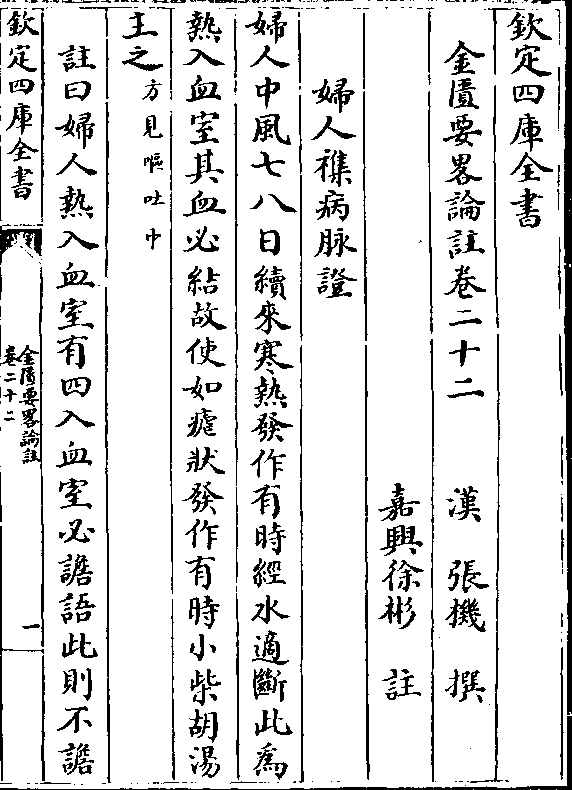 欽定四庫全書
金匱要畧論註卷二十二
漢 張機 撰
嘉興徐彬 註
婦人襍病脉證
婦人中風七八日續來寒熱發作有時經水適斷此為
熱入血室其血必結故使如瘧狀發作有時小柴胡湯
主之方見嘔吐中
註曰婦人熱入血室有四入血室必譫語此則不譫
欽定四庫全書
金匱要畧論註
卷二十二
一